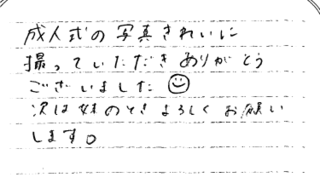 成人式の写真きれいに
撮っていただきありがとう
ございました☺
次は妹のときよろしくお願い
します。